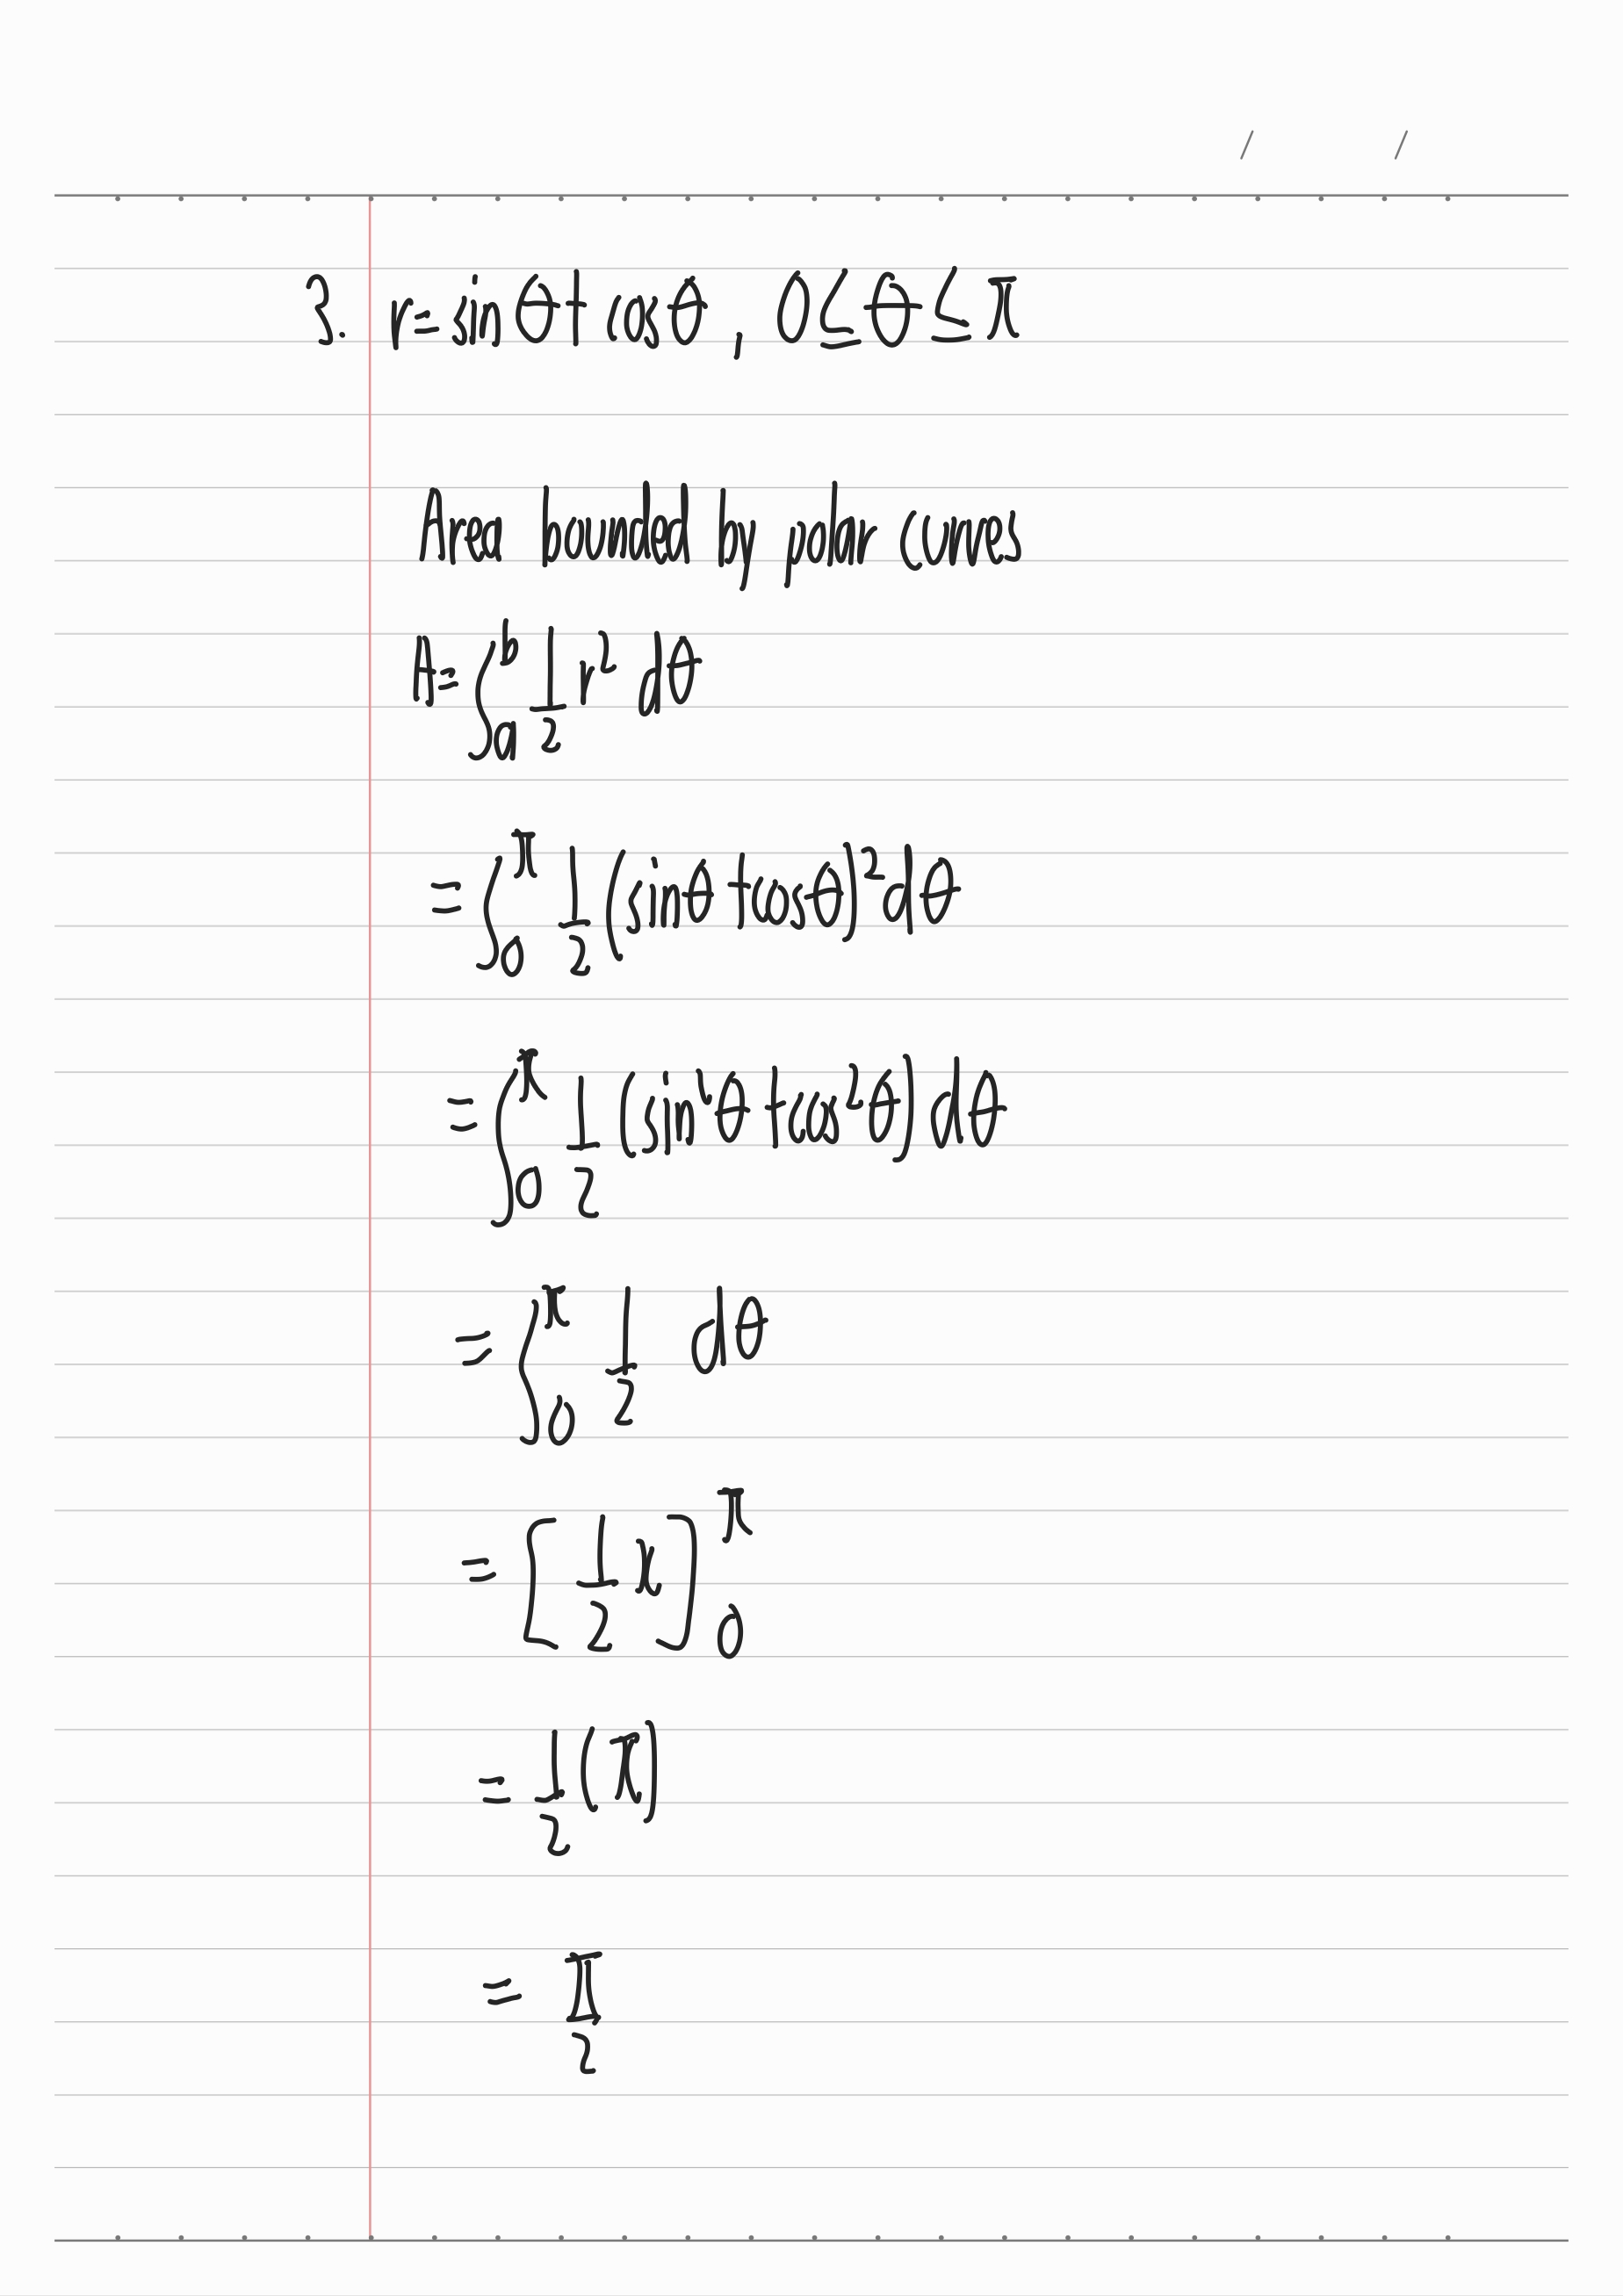 2. r=sinθ+cosθ, 0≤θ≤π
Area bounded by polar curves
A=∫_a^b 1/2 r² dθ
=∫_0^π 1/2 (sinθ+cosθ)² dθ
=∫_0^π 1/2 (sin²θ+cos²θ)dθ
=∫_0^π 1/2 dθ
=[1/2 x]_0^π
=1/2(π)
=π/2